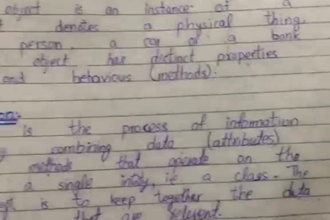 object is an instance of a
denotes a physical thing,
person, a car or a bank
object has distinct properties
and behavious (methods).
is the process of information
combining data (attributes)
methods that on the
a single i.e a class. The
is to keep together the data
that are